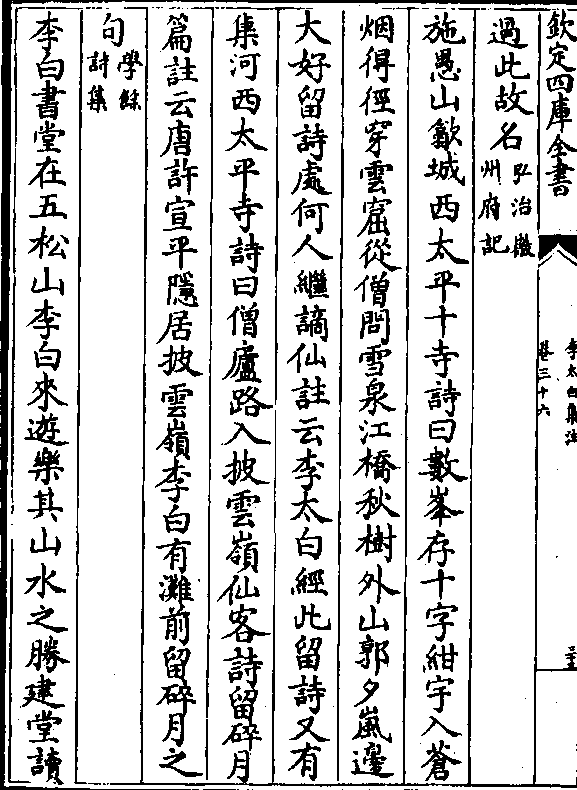 欽定四庫全書
李太白集注
卷三十六
過此故名弘治徽
州府記
施愚山歙城西太平十寺詩曰數峯存十字紺宇入蒼
烟得徑穿雲窟從僧問雪泉江橋秋樹外山郭夕嵐邊
大好留詩處何人繼謫仙註云李太白經此留詩又有
集河西太平寺詩曰僧廬路入披雲嶺仙客詩留碎月
篇註云唐許宣平隱居披雲嶺李白有灘前留碎月之
句學餘
詩集
李白書堂在五松山李白來遊樂其山水之勝建堂讀